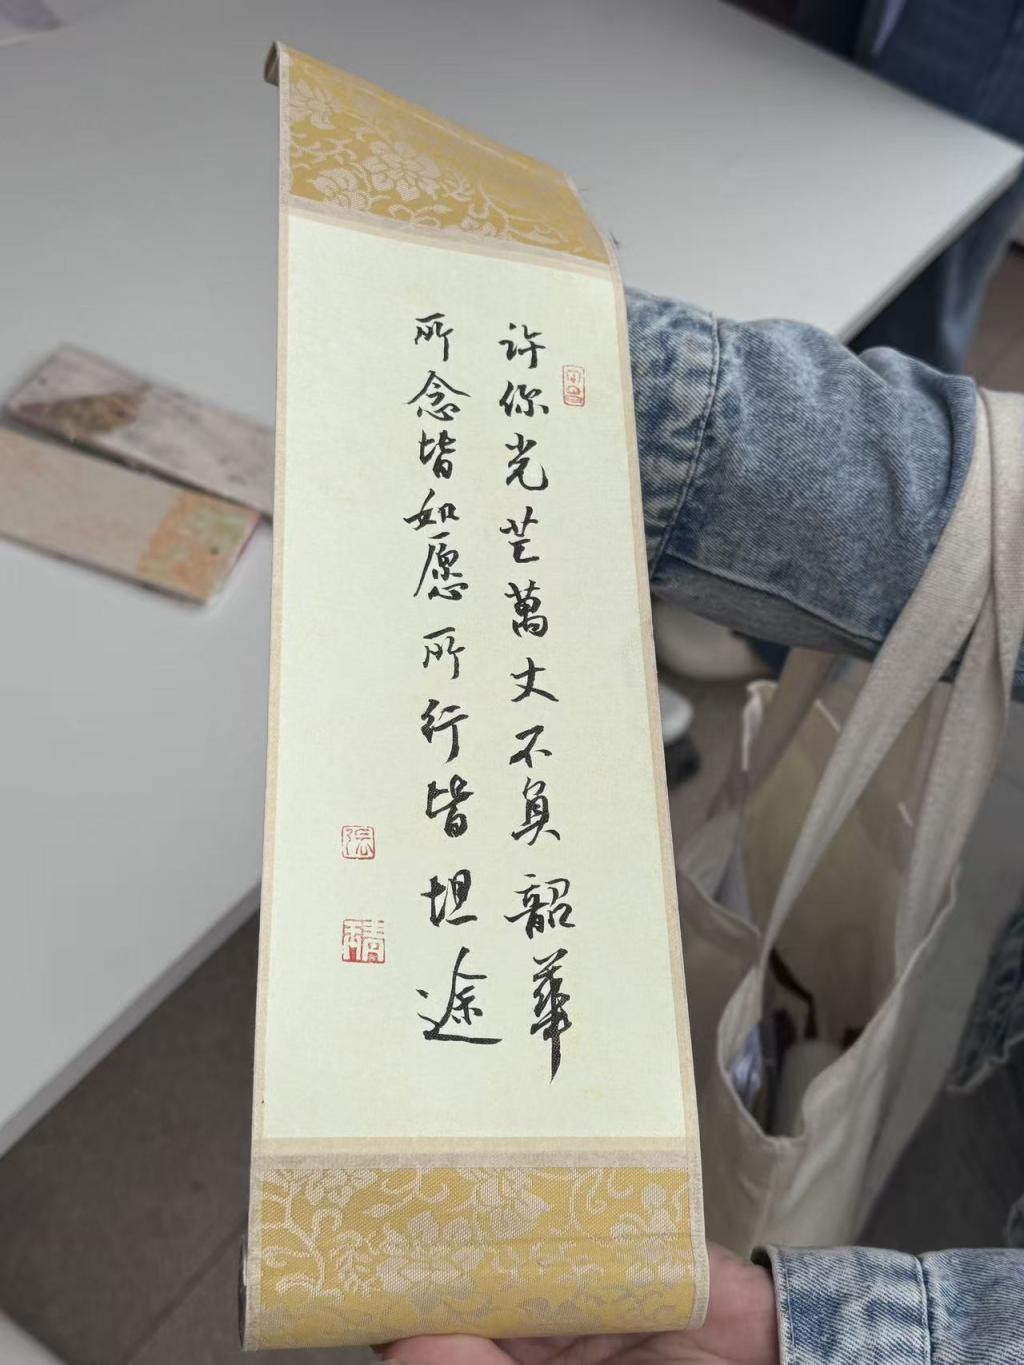 许你光芒萬丈不負韶華
所念皆如愿所行皆坦途
张